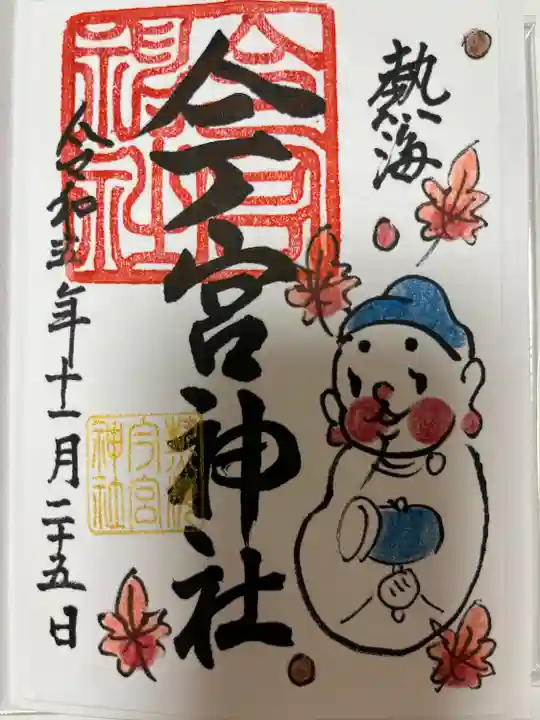 熱海
今宮神社
令和三年十一月二十五日
今宮
神社
熱海
今宮
神社